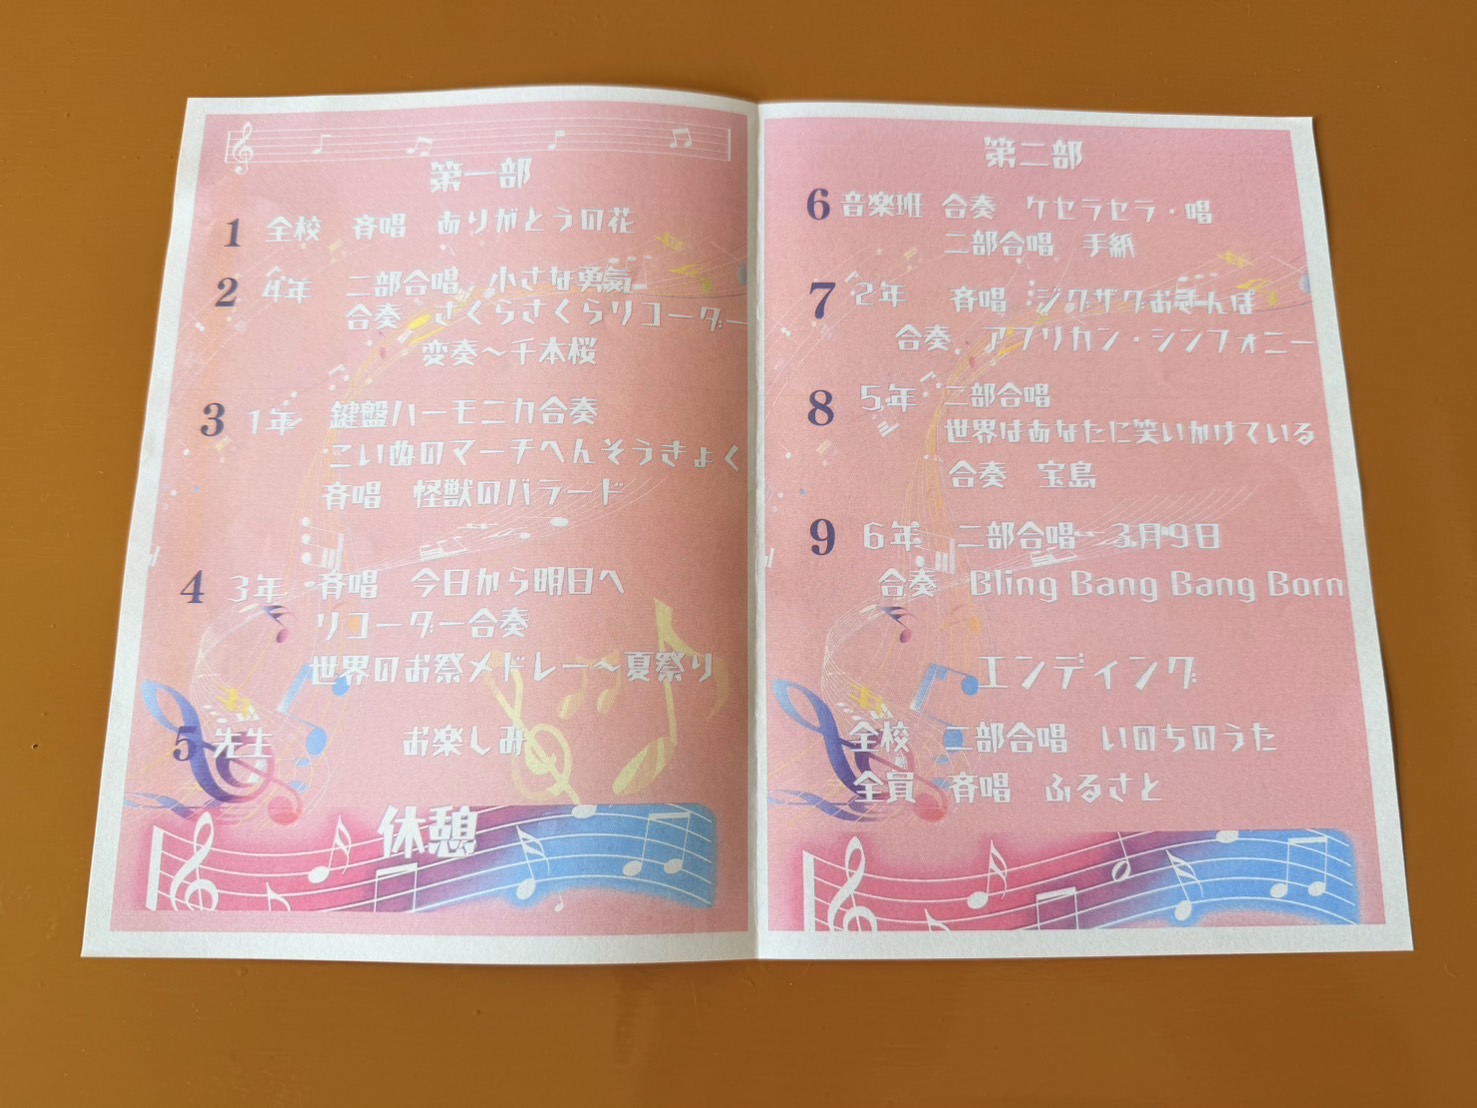 第一部
1 全校 斉唱 ありがとうの花
2 4年 二部合唱 小さな勇気
合奏 さくらさくらリコーダー
変奏～千本桜
3 1年 鍵盤ハーモニカ合奏
こいぬのマーチへんそうきょく
斉唱 怪獣のバラード
4 3年 斉唱 今日から明日へ
リコーダー合奏
世界のお祭メドレー～夏祭り
5 先生 お楽しみ
休憩
第二部
6 音楽班 合奏 ケセラセラ・唱
二部合唱 手紙
7 2年 斉唱 ジグザグおさんぽ
合奏 アフリカン・シンフォニー
8 5年 二部合唱
世界はあなたに笑いかけている
合奏 宝島
9 6年 二部合唱 3月9日
合奏 Bling Bang Bang Born
エンディング
全校 二部合唱 いのちのうた
全員 斉唱 ふるさと